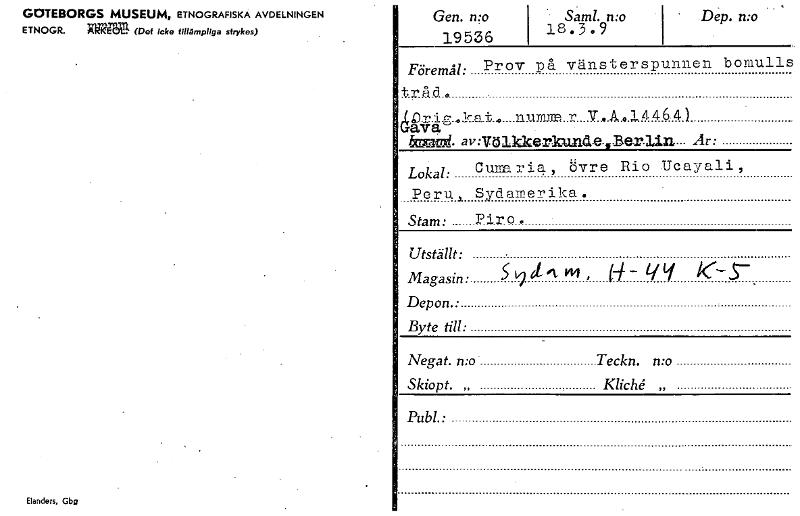 GÖTEBORGS MUSEUM, ETNOGRAFISKA AVDELNINGEN
ETNOGR. ARKEOL. (Det icke tillämpliga strykes)
Gen. n:o Saml. n:o Dep. n:o
19536 18.3.9
Föremål: Prov på vänsterspunnen bomulls
tråd.
(Orig.kat. nummer V.A.14464)
Gåva
av: Völkkerkunde, Berlin År:
Lokal: Cumaria, övre Rio Ucayali,
Peru, Sydamerika.
Stam: Piro.
Utställt:
Magasin: Sydam. H-44 K-5
Depon.:
Byte till:
Negat. n:o Teckn. n:o
Skiopt. „ Kliché „
Publ.:
Elanders, Gbg